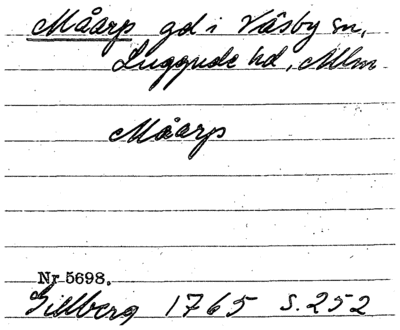 Måarp gd i Väsby sn,
Luggude hd, Mlm
Måarp
Nr 5698.
Gillberg 1765 s. 252